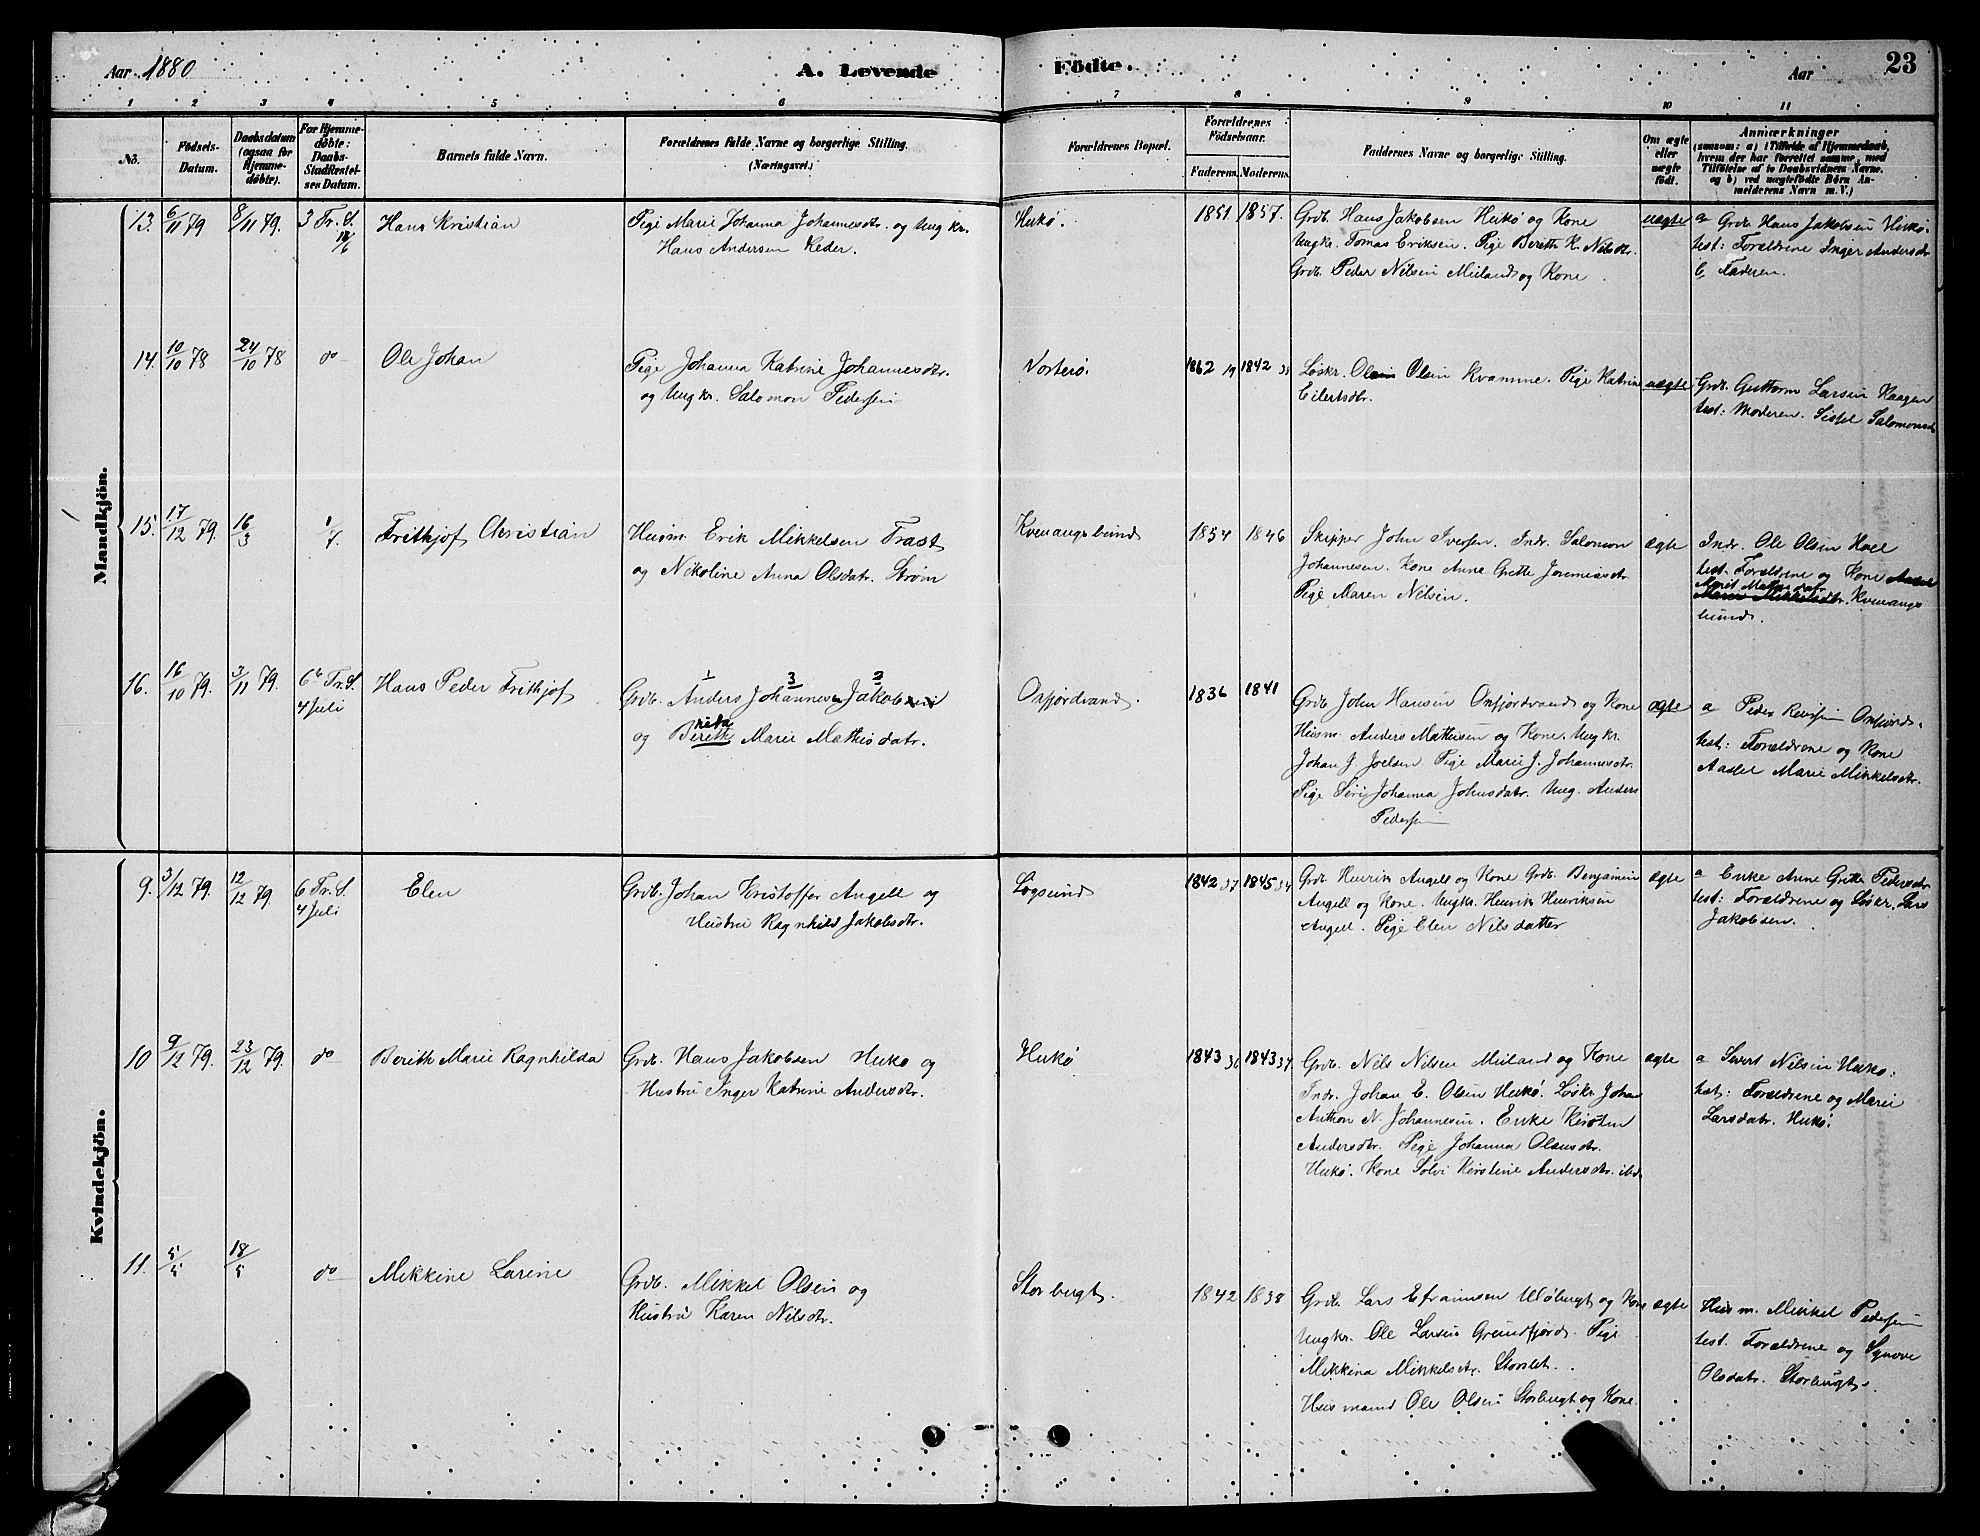 Aar 1880
A. Levende
Födte.
Aar
23
1 2 3 4 5 6 7 8 9 10 11
No.
Födsels-
Datum.
Daabsdatum
(ogsaa for
Hjemme-
døbte).
For Hjemme-
døbte:
Daabs-
Stadfæstel-
ses Datum.
Barnets fulde Navn.
Forældrenes fulde Navne og borgerlige Stilling.
(Næringsvei.)
Forældrenes Bopæl.
Forældrenes
Födselsaar.
Faderens. Moderens.
Faddernes Navne og borgerlige Stilling.
Om ægte
eller
uægte
födt.
Anmærkninger
(saasom: a) i Tilfælde af Hjemmedaab,
hvem der har forrettet samme, med
Tilföielse af to Daabsvidners Navne,
og b) ved uægtefödte Börn An-
melderens Navn m. V.)
Mandkjön.
13. 6/11 79 8/11 79. 3 Tr. S.
Hans Kristian
Pige Marie Johanna Johannesdtr. og Ungkr.
Hans Andersen Keder.
Hukø.
1851 1857.
Grdb. Hans Jakobsen Hukø og Kone
Ungkr. Tomas Eriksen. Pige Berith K. Nilsdtr.
Grdb. Peder Nilsen Meiland og Kone
uægte
a Grdb. Hans Jakobsen Hukø.
test: Forældrene Inger Andersdtr
b, Faderen.
14. 10/10 78 24/10 78 do
Ole Johan
Pige Johanna Katrine Johannesdtr.
og Ungkr. Salomon Pedersen
Norterø.
1862 19 1842
Løskr. Olsen Olsen Kvamme. Pige Katrine
Eilertsdtr.
uægte
Grdb. Guttorm Larsen Haagen
test: Moderen. Sissel Salomonsdtr
15. 17/12 79. 16/3 1/7.
Frithjof Christian
Husm. Erik Mikkelsen Trast
og Nikoline Anna Olsdatr. Strøm
Kvenangsbund
1854 1846
Skipper John Iversen. Indr. Salomon
Johannesen. Kone Anne Grethe Jeremiasdtr.
Pige Maren Nilsen.
ægte
Indr. Ole Olsen Hoel
test. Forældrene og Kone Aasel
Marit Mathisdatr.
Marie Mikkelsdtr. Kvenangs
bund.
16. 16/10 79. 3/11 79. 6te Tr. S.
4 Juli
Hans Peder Frithjof
1 3 2
Grdb. Anders Johannesen Jakobsen
og Berith Marie Mathisdatr.
Oxfjordvand.
1836 1841
Grdb. John Hansen Oxfjordvand og Kone
Husm. Anders Mathisen og Kone. Ungkr.
Johan J. Joelsen Pige Marie J. Johannesdtr.
Pige Siri Johanna Johnsdatr. Ung. Anders
Pedersen
ægte
a Peder Oxfjord.
test: Forældrene og Kone
Aasel Marie Mikkelsdtr.
Kvindekjön.
9. 3/12 79. 12/12 79. 6 Tr. S.
4 Juli
Elen
Grdb. Johan Kristoffer Angell og
Hustru Ragnhild Jakobsdtr.
Løgsund
1842 37 1845 34
Grdb. Henrik Angell og Kone Grdb. Benjamin
Angell og Kone. Ungkr. Henrik Henriksen
Angell. Pige Elen Nilsdatter
ægte
a Enke Anne Grethe Pedersdtr
test: Forældrene og Løskr. Lars
Jakobsen.
10 9/12 79. 23/12 79. do
Berith Marie Ragnhilda
Grdb. Hans Jakobsen Hukø og
Hustru Inger Katrine Andersdtr.
Hukø
1843 36 1843 37
Grdb. Nils Nilsen Meiland og Kone
Indr. Johan E. Olsen Hukø. Løskr Johan
Anthon N. Johannesen. Enke Kirsten
Andersdtr. Pige Johanna Olausdtr.
Hukø. Kone Solvi Kerstine Andersdtr. ibd.
ægte
a Sivert Nilsen Hukø:
test: Forældrene og Marie
Larsdatr. Hukø.
11. 5/5 18/5 do
Mikkine Larine
Grdb. Mikkel Olsen og
Hustru Karen Nilsdtr.
Storbugt.
1842 1838
Grdb. Lars Efraimsen og Kone
Ungkr. Ole Larsen Grundfjord. Pige
Mikkina Mikkelsdtr. Storslet.
Husmand Ole Olsen Storbugt og Kone
ægte
Husm. Mikkel Pedersen
test. Forældrene og Synøve
Olsdatr. Storbugt.